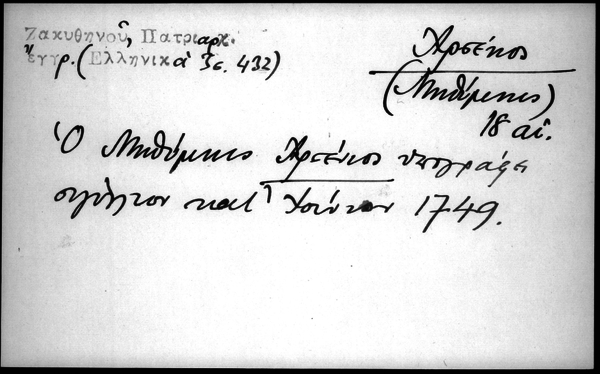 Ζακυθηνοῦ, Πατριαρχ.
ἔγγρ. (Ἑλληνικὰ 3ε. 432)
Ἀρσένιος
(Μηθύμνης)
18 αἰ.
Ὁ Μηθύμνης Ἀρσένιος ὑπογράφει
σιγίλλιον κατὰ Ἰούνιον 1749.